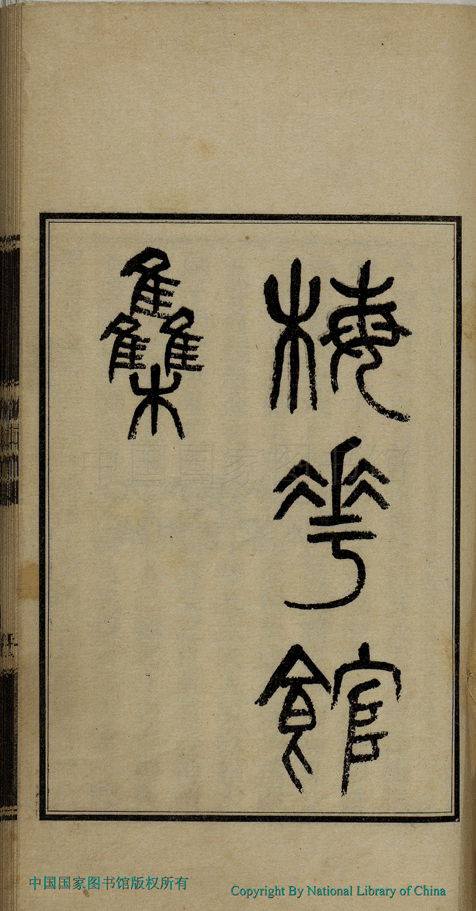 梅花館
雧
中国国家图书馆版权所有
Copyright By National Library of China